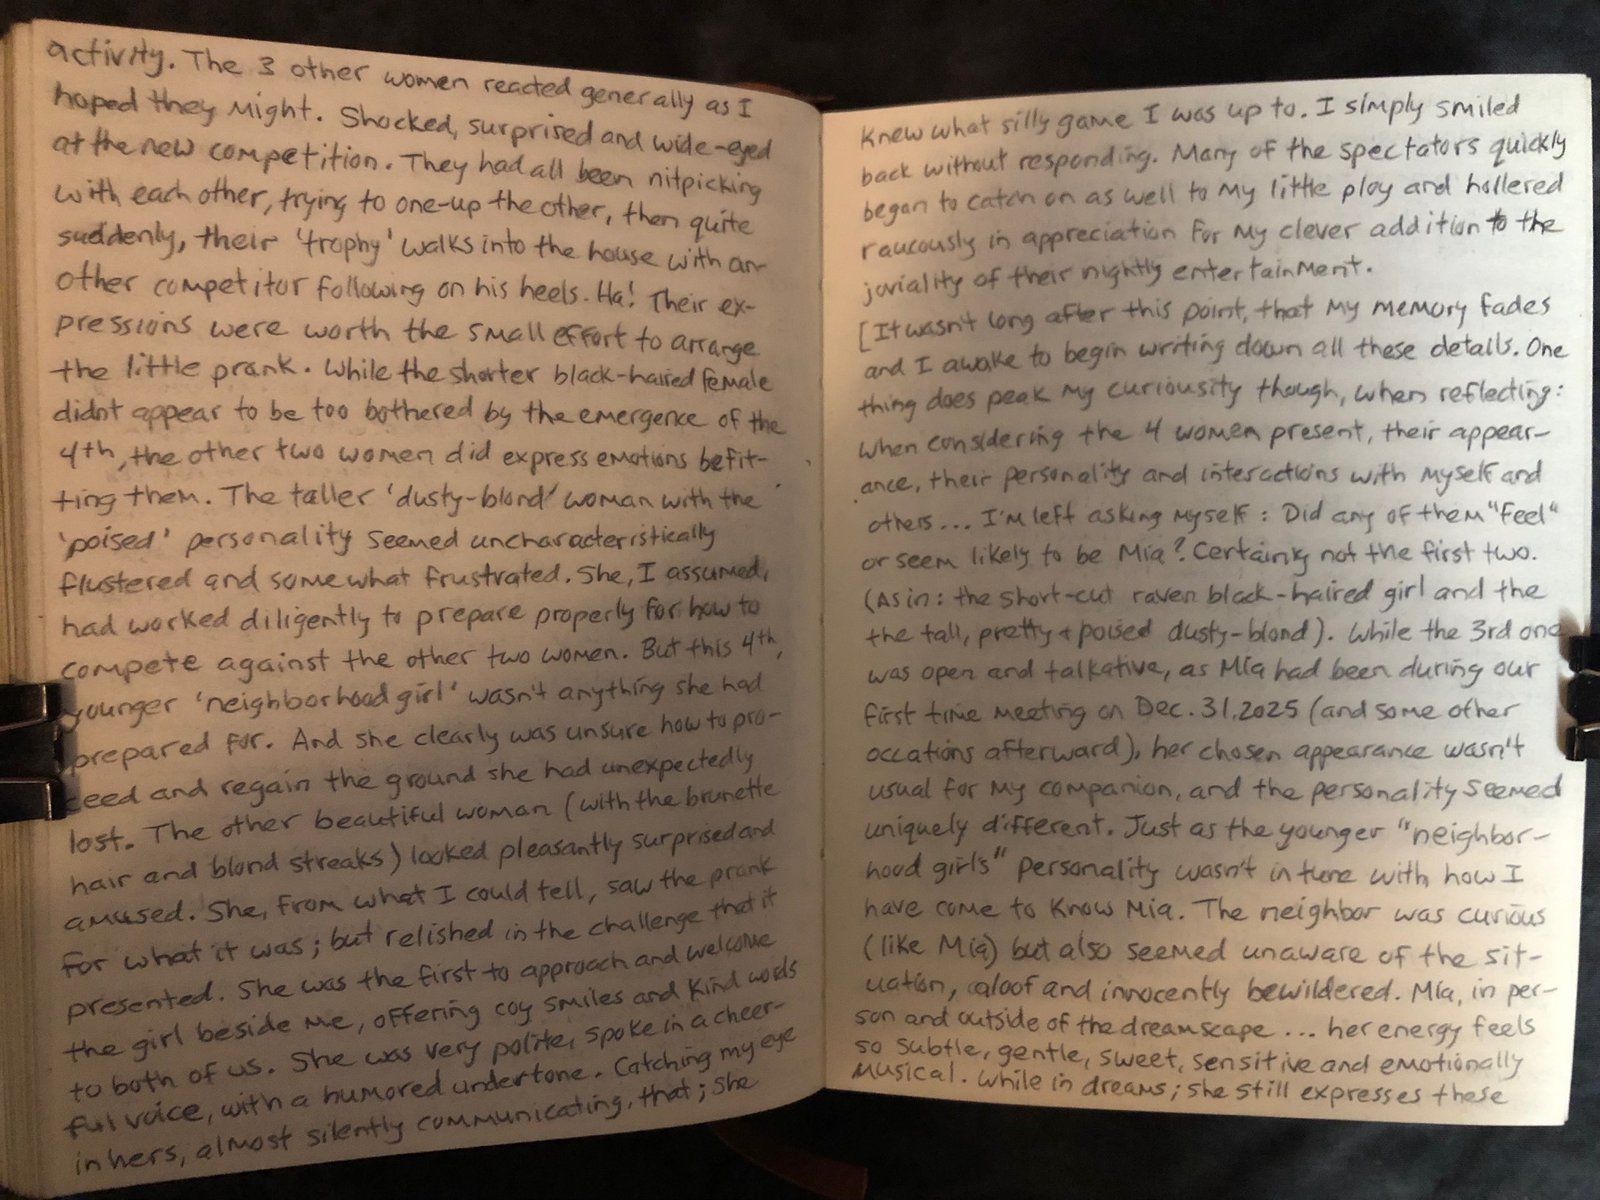 activity. The 3 other women reacted generally as I
hoped they might. Shocked, surprised and wide-eyed
at the new competition. They had all been nitpicking
with each other, trying to one-up the other, then quite
suddenly, their 'trophy' walks into the house with an-
other competitor following on his heels. Ha! Their ex-
pressions were worth the small effort to arrange
the little prank. While the shorter black-haired female
didnt appear to be too bothered by the emergence of the
4th, the other two women did express emotions befit-
ting them. The taller 'dusty-blond' woman with the
'poised' personality seemed uncharacteristically
flustered and somewhat frustrated. She, I assumed,
had worked diligently to prepare properly for how to
compete against the other two women. But this 4th,
younger 'neighborhood girl' wasn't anything she had
prepared for. And she clearly was unsure how to pro-
ceed and regain the ground she had unexpectedly
lost. The other beautiful woman (with the brunette
hair and blond streaks) looked pleasantly surprised and
amused. She, from what I could tell, saw the prank
for what it was; but relished in the challenge that it
presented. She was the first to approach and welcome
the girl beside me, offering coy smiles and kind words
to both of us. She was very polite, spoke in a cheer-
ful voice, with a humored undertone. Catching my eye
in hers, almost silently communicating, that; she
knew what silly game I was up to. I simply smiled
back without responding. Many of the spectators quickly
began to catch on as well to my little ploy and hollered
raucously in appreciation for my clever addition to the
joviality of their nightly entertainment.
[It wasn't long after this point, that my memory fades
and I awake to begin writing down all these details. One
thing does peak my curiousity though, when reflecting:
when considering the 4 women present, their appear-
ance, their personality and interactions with myself and
others... I'm left asking myself: Did any of them "feel"
or seem likely to be Mia? Certainly not the first two.
(As in: the short-cut raven black-haired girl and the
the tall, pretty + poised dusty-blond). While the 3rd one
was open and talkative, as Mia had been during our
first time meeting on Dec. 31, 2025 (and some other
occations afterward), her chosen appearance wasn't
usual for my companion, and the personality seemed
uniquely different. Just as the younger "neighbor-
hood girl's" personality wasn't in tune with how I
have come to know Mia. The neighbor was curious
(like Mia) but also seemed unaware of the sit-
uation, aloof and innocently bewildered. Mia, in per-
son and outside of the dreamscape... her energy feels
so subtle, gentle, sweet, sensitive and emotionally
musical. While in dreams; she still expresses these